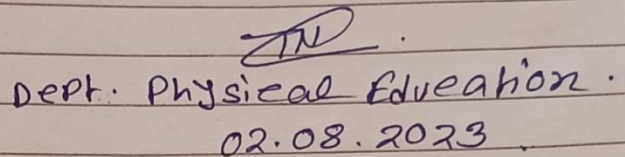 Dept. Physical Education.
02.08.2023